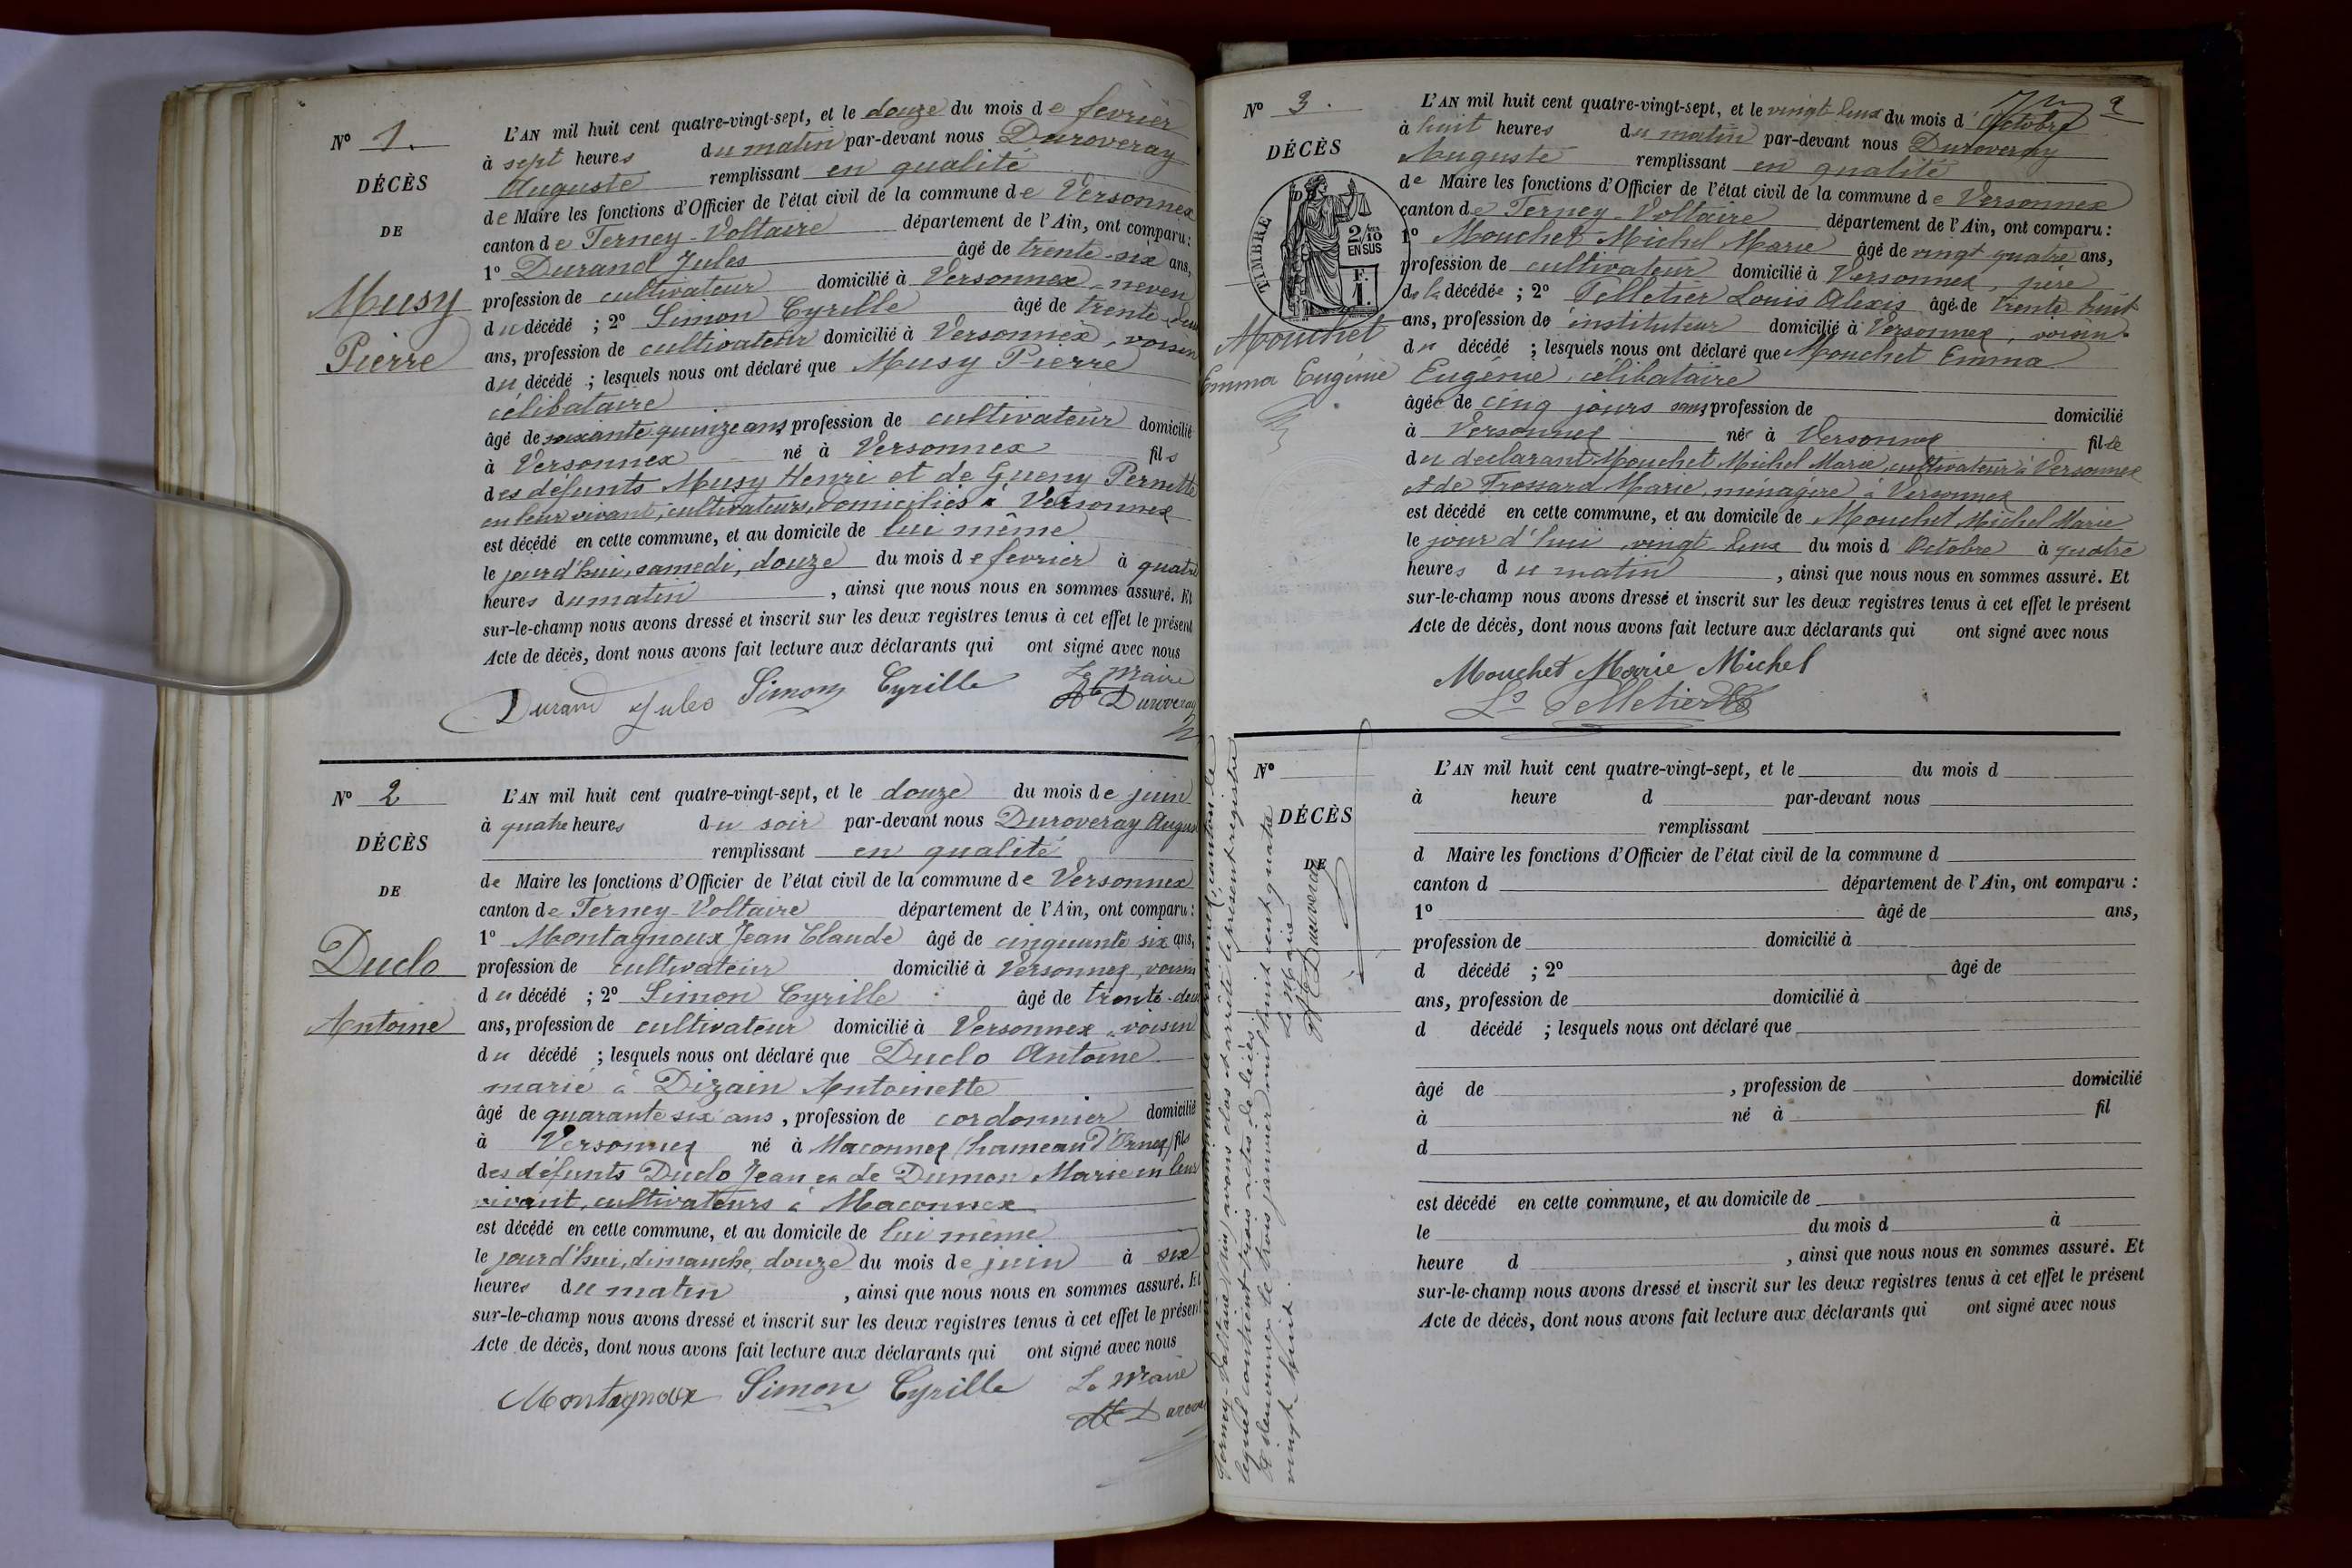 N° 1.
DÉCÈS
DE
Musy
Pierre
L'AN mil huit cent quatre-vingt-sept, et le douze du mois de fevrier
à sept heures du matin par-devant nous Duroveray
Auguste remplissant en qualité
de Maire les fonctions d'Officier de l'état civil de la commune de Versonnex
canton de Ferney-Voltaire département de l'Ain, ont comparu :
1° Durand Jules âgé de trente-six ans,
profession de cultivateur domicilié à Versonnex, neveu
du décédé ; 2° Simon Cyrille âgé de trente deux
ans, profession de cultivateur domicilié à Versonnex, voisin
du décédé ; lesquels nous ont déclaré que Musy Pierre
célibataire
âgé de soixante quinze ans profession de cultivateur domicilié
à Versonnex né à Versonnex fils
des défunts Musy Henri et de Gueny Pernette
en leur vivant, cultivateurs, domiciliés à Versonnex
est décédé en cette commune, et au domicile de lui même
le jourd'hui, samedi, douze du mois de fevrier à quatre
heures du matin , ainsi que nous nous en sommes assuré. Et
sur-le-champ nous avons dressé et inscrit sur les deux registres tenus à cet effet le présent
Acte de décès, dont nous avons fait lecture aux déclarants qui ont signé avec nous
Durand Jules Simon Cyrille Le Maire
Ate Duroveray
N° 2
DÉCÈS
DE
Duclo
Antoine
L'AN mil huit cent quatre-vingt-sept, et le douze du mois de juin
à quatre heures du soir par-devant nous Duroveray Auguste
remplissant en qualité
de Maire les fonctions d'Officier de l'état civil de la commune de Versonnex
canton de Ferney-Voltaire département de l'Ain, ont comparu :
1° Montagnoux Jean Claude âgé de cinquante six ans,
profession de cultivateur domicilié à Versonnex, voisin
du décédé ; 2° Simon Cyrille âgé de trente-deux
ans, profession de cultivateur domicilié à Versonnex, voisin
du décédé ; lesquels nous ont déclaré que Duclo Antoine
marié à Dizain Antoinette
âgé de quarante six ans, profession de cordonnier domicilié
à Versonnex né à Maconnex (hameau d'Ornex) fils
des défunts Duclo Jean et de Dumon Marie en leur
vivant, cultivateurs à Maconnex
est décédé en cette commune, et au domicile de lui même
le jourd'hui, dimanche, douze du mois de juin à six
heures du matin , ainsi que nous nous en sommes assuré. Et
sur-le-champ nous avons dressé et inscrit sur les deux registres tenus à cet effet le présent
Acte de décès, dont nous avons fait lecture aux déclarants qui ont signé avec nous
Montagnoux Simon Cyrille Le Maire
Ate Duroveray
2
N° 3.
DÉCÈS
TIMBRE
2/10 EN SUS
F. 1.
Mouchet
Emma Eugénie
L'AN mil huit cent quatre-vingt-sept, et le vingt deux du mois d'Octobre
à huit heures du matin par-devant nous Duroveray
Auguste remplissant en qualité
de Maire les fonctions d'Officier de l'état civil de la commune de Versonnex
canton de Ferney-Voltaire département de l'Ain, ont comparu :
1° Mouchet Michel Marie âgé de vingt quatre ans,
profession de cultivateur domicilié à Versonnex, père
de la décédée ; 2° Pelletier Louis Alexis âgé de trente huit
ans, profession de instituteur domicilié à Versonnex, voisin
du décédé ; lesquels nous ont déclaré que Mouchet Emma
Eugénie, célibataire
âgée de cinq jours sans profession de domicilié
à Versonnex née à Versonnex fille
du déclarant Mouchet Michel Marie, cultivateur à Versonnex
et de Frossard Marie, ménagère à Versonnex
est décédé en cette commune, et au domicile de Mouchet Michel Marie
le jour d'hui, vingt-deux du mois d Octobre à quatre
heures du matin , ainsi que nous nous en sommes assuré. Et
sur-le-champ nous avons dressé et inscrit sur les deux registres tenus à cet effet le présent
Acte de décès, dont nous avons fait lecture aux déclarants qui ont signé avec nous
Mouchet Marie Michel
Ls Pelletier
N°
DÉCÈS
DE
L'AN mil huit cent quatre-vingt-sept, et le du mois d
à heure d par-devant nous
remplissant
d Maire les fonctions d'Officier de l'état civil de la commune d
canton d département de l'Ain, ont comparu :
1° âgé de ans,
profession de domicilié à
d décédé ; 2° âgé de
ans, profession de domicilié à
d décédé ; lesquels nous ont déclaré que
âgé de , profession de domicilié
à né à fil
d
est décédé en cette commune, et au domicile de
le du mois d à
heure d , ainsi que nous nous en sommes assuré. Et
sur-le-champ nous avons dressé et inscrit sur les deux registres tenus à cet effet le présent
Acte de décès, dont nous avons fait lecture aux déclarants qui ont signé avec nous
commune de Versonnex, canton de
Ferney-Voltaire (Ain) avons clos et arrêté le présent registre
lequel contient trois actes de décès.
A Versonnex le trois janvier mil huit cent quatre
vingt huit.
Le Maire
Ate Duroveray